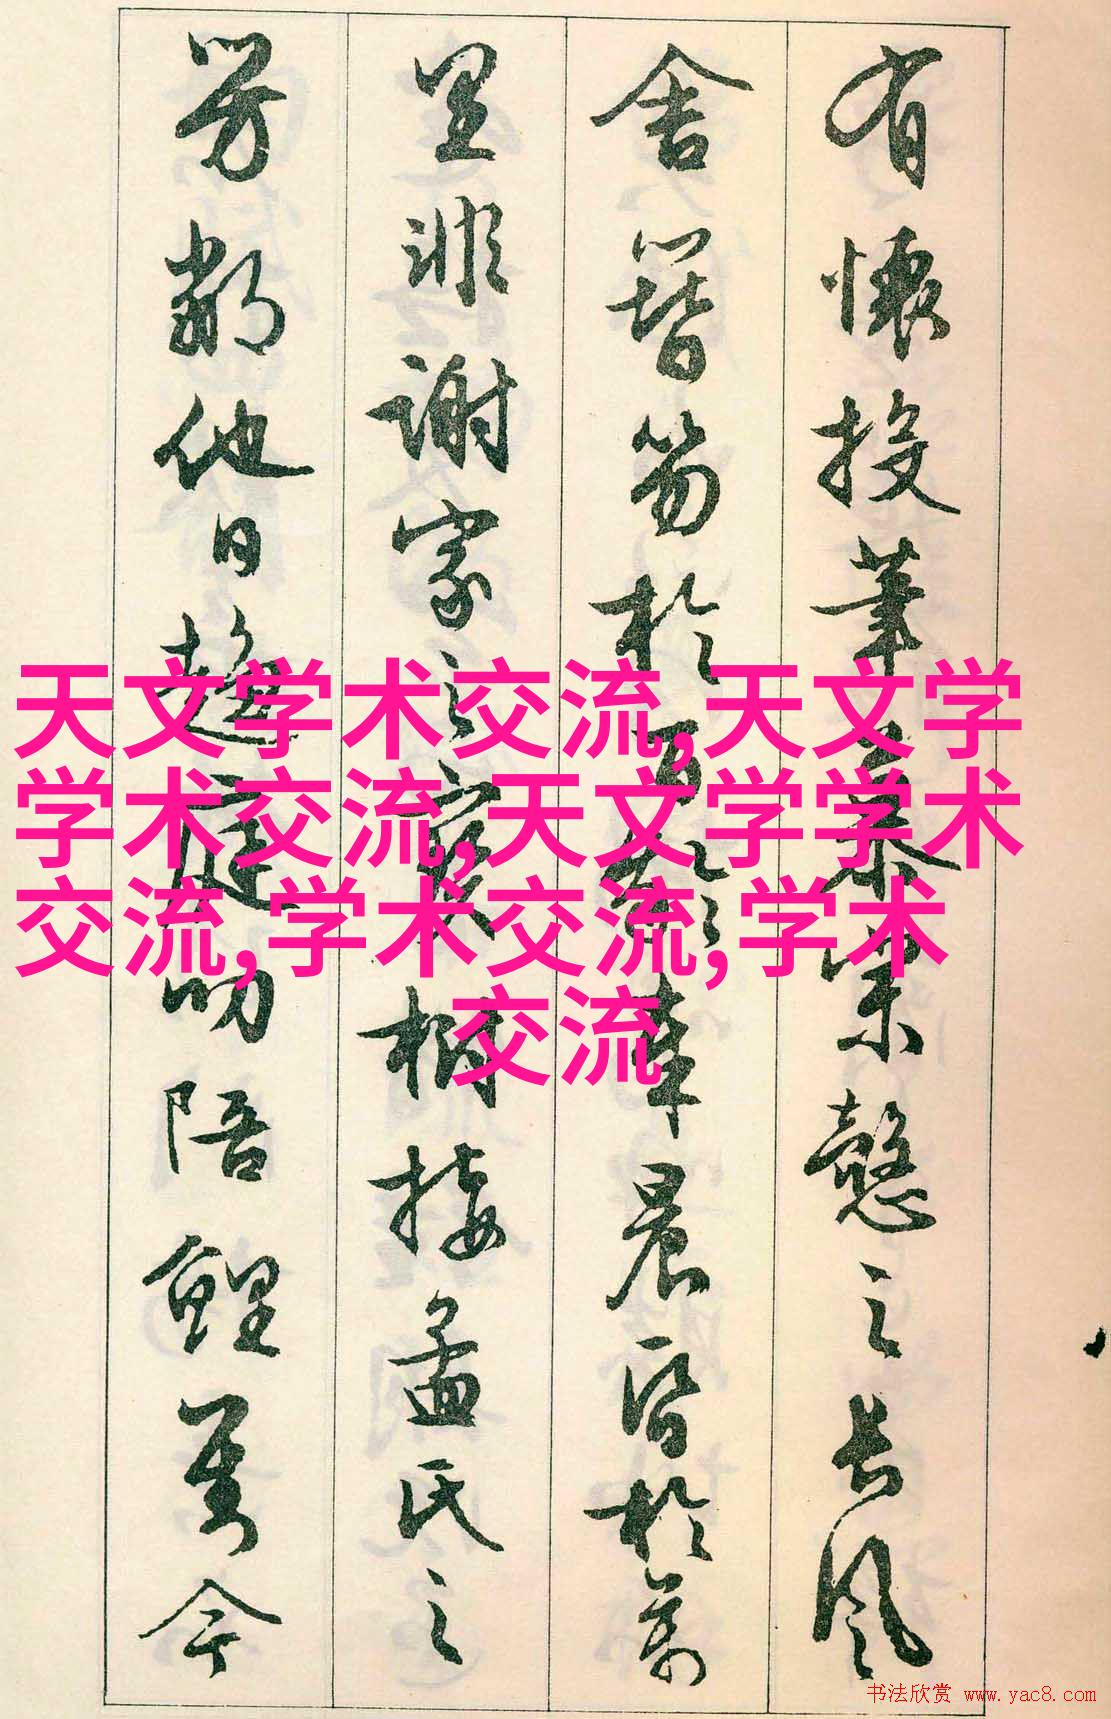 有懷投筆慕宗慤之長風
舍簪笏於百齡奉晨昏於萬
里非謝家之寶樹接孟氏之
芳鄰他日趨庭叨陪鯉對今
天文学术交流,天文学
学术交流,天文学学术
交流,学术交流,学术
交流
书法欣赏 www.yac8.com